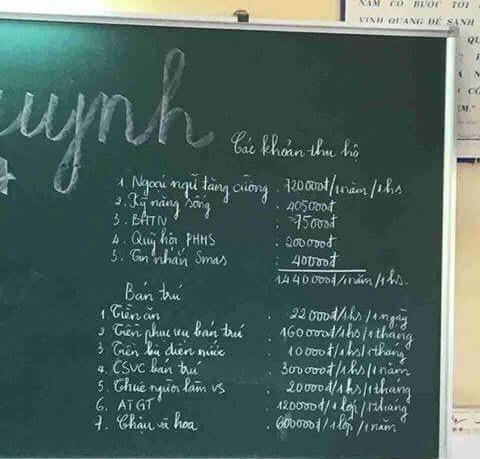 NĂM CÓ ĐƯỢC TỚI
VINH QUANG ĐỂ SÁNH
uynh
Các khoản thu hộ
1. Ngoại ngữ tăng cường . 720000đ/1năm/1hs
2. Kỹ năng sống : 405000đ
3. BHTN : 75000đ
4. Quỹ hội PHHS : 200000đ
5. Tin nhắn Smas : 40000đ
1440000đ/1năm/1hs.
Bán trú
1 Tiền ăn . 22000đ/1hs/1ngày
2 Tiền phục vụ bán trú . 160000đ/1hs/1tháng
3 Tiền bù điện nước . 10000đ/1hs/1tháng
4. CSVC bán trú . 300000đ/1hs/1năm
5. Thuê người làm VS . 20000đ/1hs/1tháng
6. ATGT : 120000đ/1lớp/1tháng
7. Chậu và hoa . 600000đ/1lớp/1năm